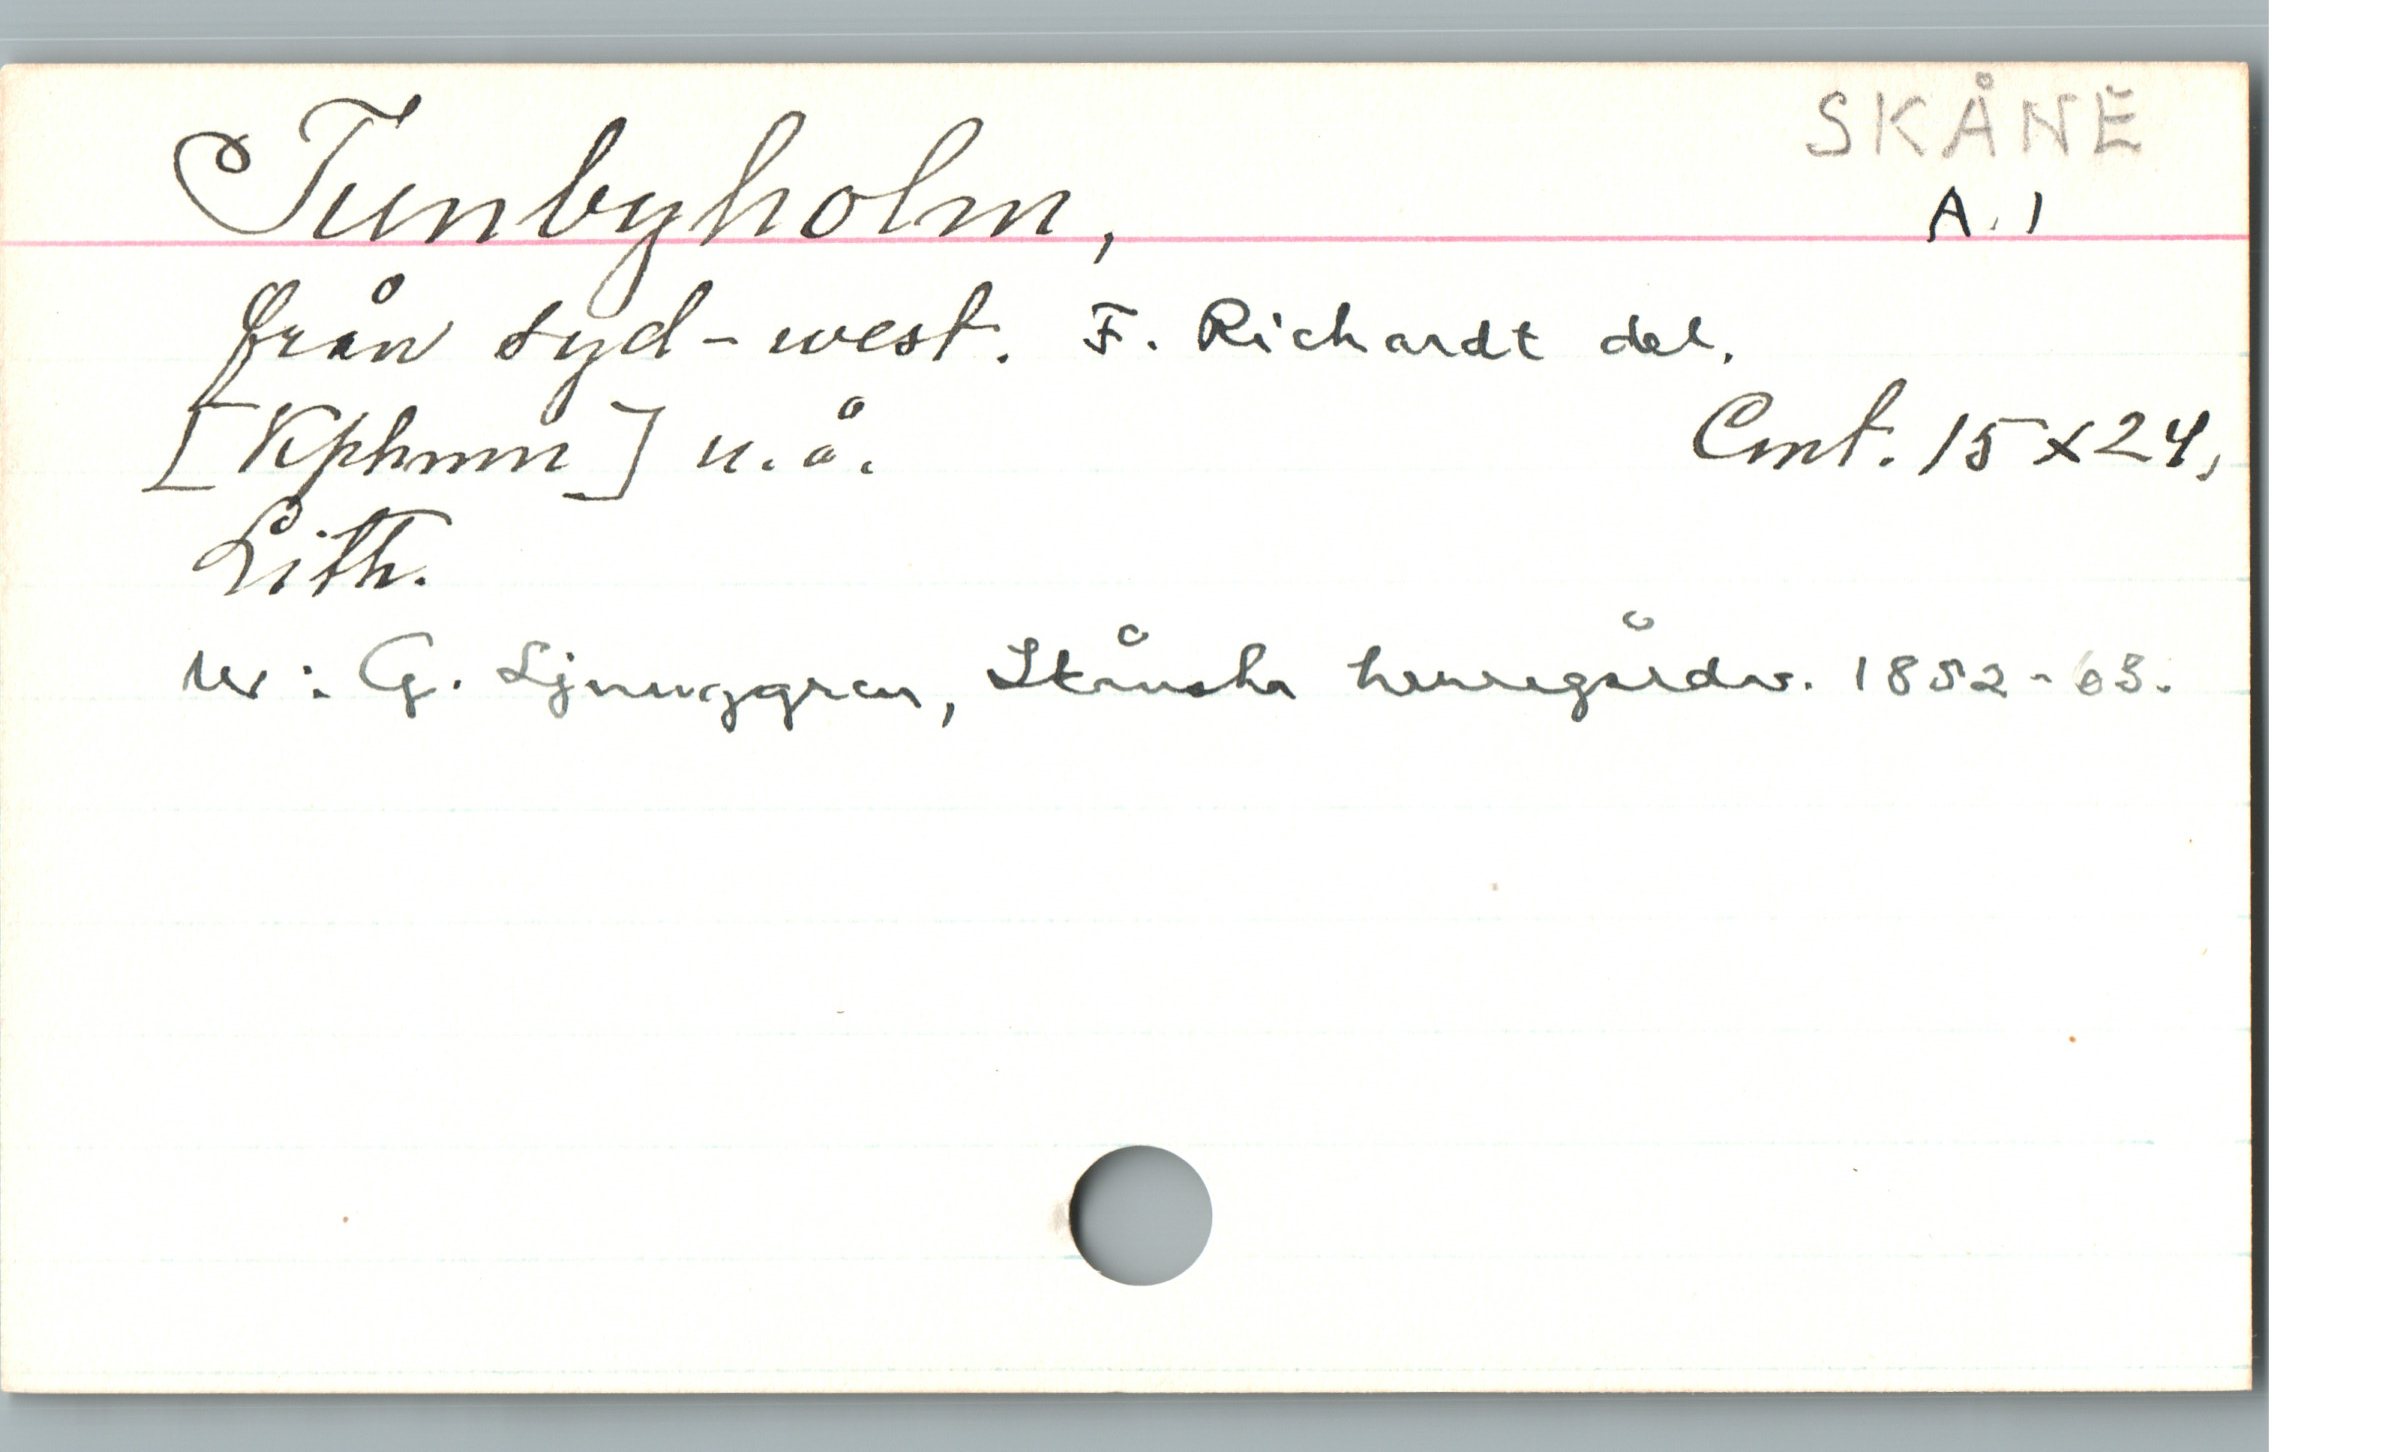 SKÅNE
Tunbyholm,
A. 1
från syd-west. F. Richardt del.
[Kphmn] u. å. Cmt. 15 x 24,
Lith.
Ur: G. Ljunggren, Skånska herregårdar. 1852-63.